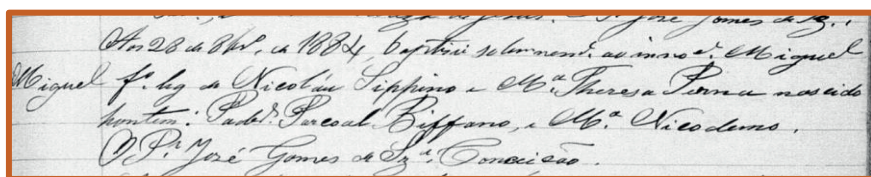 José Gomes de Sz.ª
Aos 28 de 8br.º de 1884, baptisei solemnem.e ao innoc.e Miguel
Miguel f.º leg de Nicoláu Sippino e M.ª Theresa Perna nascido
hontem: Padr.s Pascoal Biffano, e M.ª Nicodemo.
O P.e José Gomes de Sz.ª Conceição.